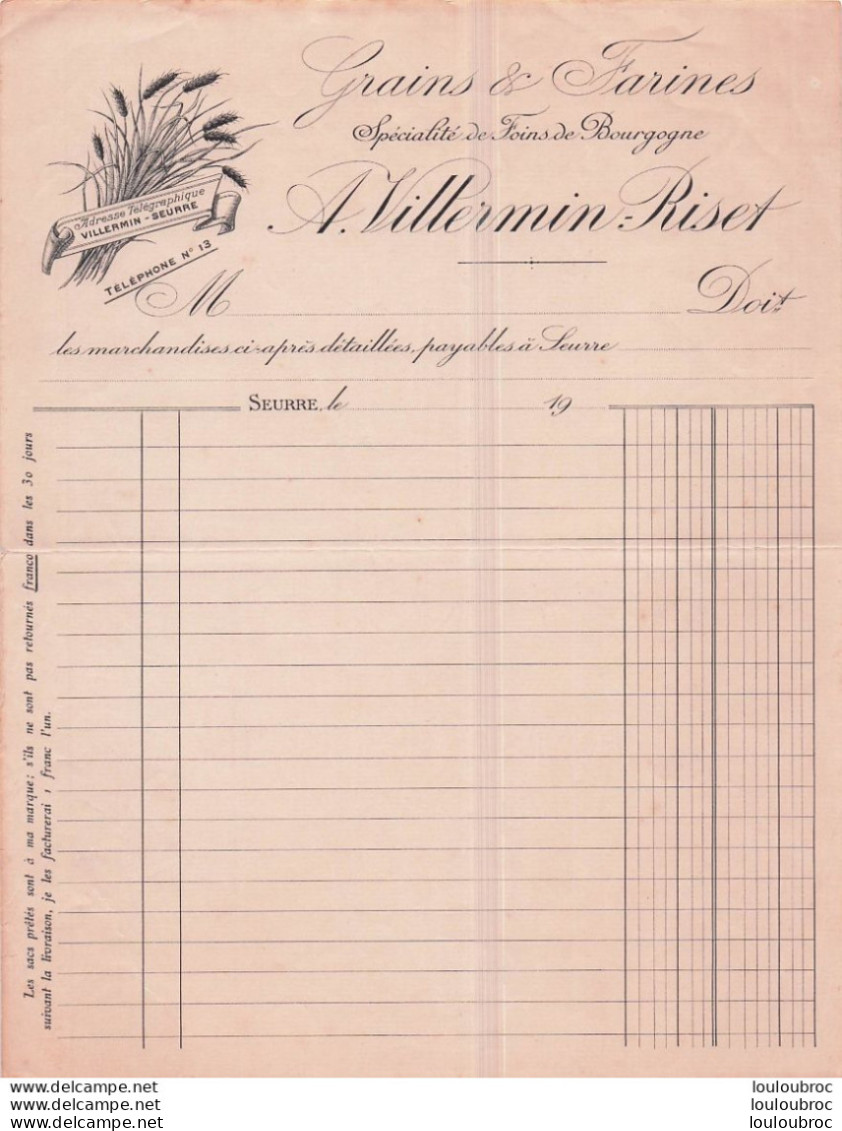 Grains & Farines
Spécialité de Foins de Bourgogne
A. Villermin-Riset
Adresse Télégraphique
VILLERMIN - SEURRE
TÉLÉPHONE N° 13
M Doit
les marchandises ci-après détaillées, payables à Seurre
SEURRE, le 19
Les sacs prêtés sont à ma marque; s'ils ne sont pas retournés franco dans les 30 jours
suivant la livraison, je les facturerai 1 franc l'un.
www.delcampe.net louloubroc
www.delcampe.net louloubroc
www.delcampe.net louloubroc